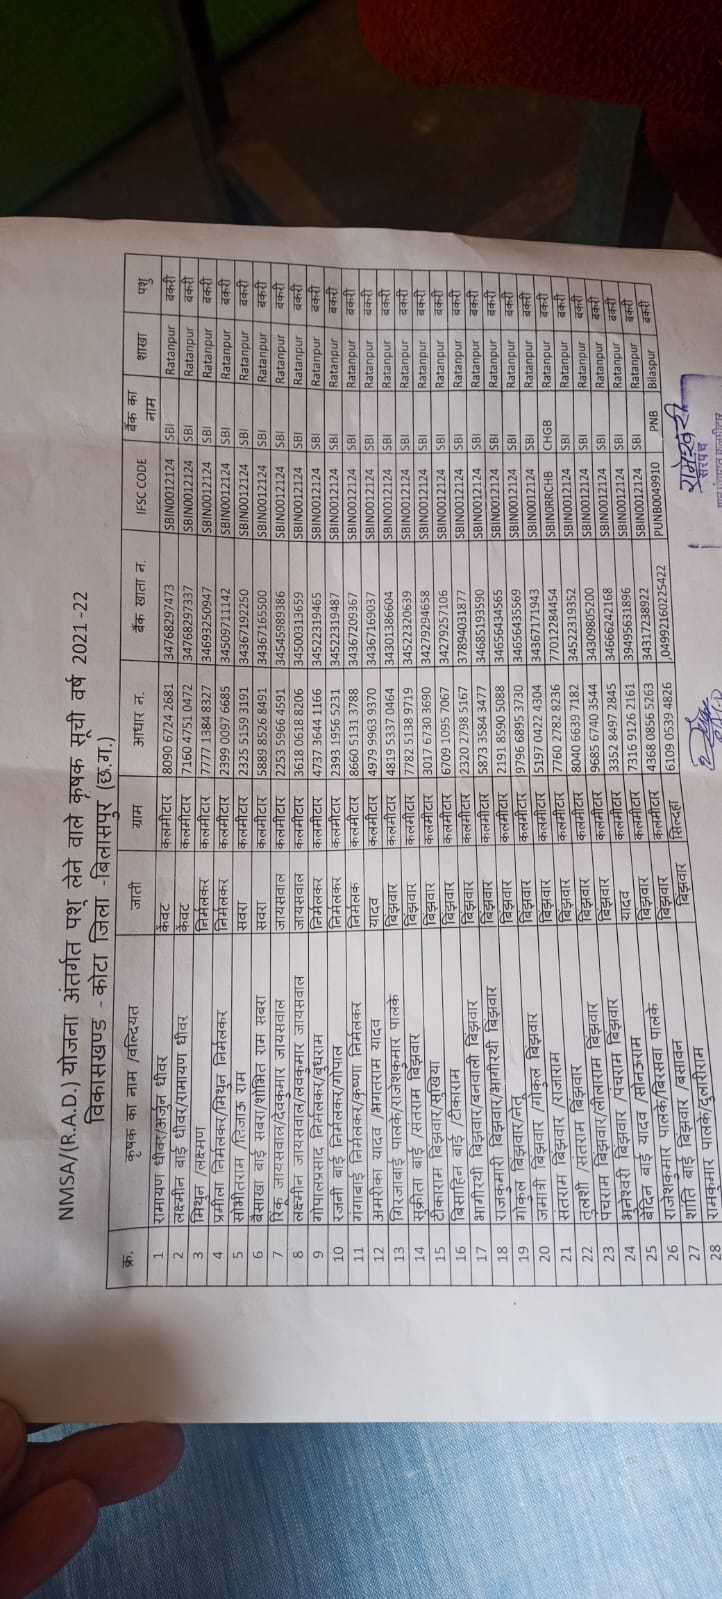 NMSA/(R.A.D.) योजना अंतर्गत पशु लेने वाले कृषक सूची वर्ष 2021-22
विकासखण्ड - कोटा जिला -बिलासपुर (छ.ग.)
क्र. कृषक का नाम /वल्दियत जाती ग्राम आधार न. बैंक खाता न. IFSC CODE बैंक का नाम शाखा पशु
1 रामायण धीवर/अर्जुन धीवर केंवट कलमीटार 8090 6724 2681 34768297473 SBIN0012124 SBI Ratanpur बकरी
2 लक्ष्मीन बाई धीवर/रामायण धीवर केंवट कलमीटार 7160 4751 0472 34768297337 SBIN0012124 SBI Ratanpur बकरी
3 मिथुन /लक्ष्मण निर्मलकर कलमीटार 7777 1384 8327 34693250947 SBIN0012124 SBI Ratanpur बकरी
4 प्रमीला निर्मलकर/मिथुन निर्मलकर निर्मलकर कलमीटार 2399 0097 6685 34509711142 SBIN0012124 SBI Ratanpur बकरी
5 सोभीतराम /तिजाऊ राम सवरा कलमीटार 2325 5159 3191 34367192250 SBIN0012124 SBI Ratanpur बकरी
6 बैसाखा बाई सबरा/शोभित राम सबरा सवरा कलमीटार 5889 8526 8491 34367165500 SBIN0012124 SBI Ratanpur बकरी
7 रिकू जायसवाल/देवकुमार जायसवाल जायसवाल कलमीटार 2253 5966 4591 34545989386 SBIN0012124 SBI Ratanpur बकरी
8 लक्ष्मीन जायसवाल/लवकुमार जायसवाल जायसवाल कलमीटार 3618 0618 8206 34500313659 SBIN0012124 SBI Ratanpur बकरी
9 गोपालप्रसाद निर्मलकर/बुधराम निर्मलकर कलमीटार 4737 3644 1166 34522319465 SBIN0012124 SBI Ratanpur बकरी
10 रजनी बाई निर्मलकर/गोपाल निर्मलकर कलमीटार 2393 1956 5231 34522319487 SBIN0012124 SBI Ratanpur बकरी
11 गंगाबाई निर्मलकर/कृष्णा निर्मलकर निर्मलक कलमीटार 8660 5131 3788 34367209367 SBIN0012124 SBI Ratanpur बकरी
12 अमरीका यादव /भगतराम यादव यादव कलमीटार 4979 9963 9370 34367169037 SBIN0012124 SBI Ratanpur बकरी
13 गिरजाबाई पालके/राजेशकुमार पालके बिझवार कलमीटार 4819 5337 0464 34301386604 SBIN0012124 SBI Ratanpur बकरी
14 सुकीता बाई /संतराम बिझवार बिझवार कलमीटार 7782 5138 9719 34522320639 SBIN0012124 SBI Ratanpur बकरी
15 टीकाराम बिझवार/सुखिया बिझवार कलमीटार 3017 6730 3690 34279294658 SBIN0012124 SBI Ratanpur बकरी
16 बिसाहिन बाई /टीकाराम बिझवार कलमीटार 6709 1095 7067 34279257106 SBIN0012124 SBI Ratanpur बकरी
17 भागीरथी बिझवार/बनवाली बिझवार बिझवार कलमीटार 2320 2798 5167 37894031877 SBIN0012124 SBI Ratanpur बकरी
18 राजकुमारी बिझवार/भागीरथी बिझवार बिझवार कलमीटार 5873 3584 3477 34685193590 SBIN0012124 SBI Ratanpur बकरी
19 गोकुल बिझवार/नेतू बिझवार कलमीटार 2191 8590 5088 34656434565 SBIN0012124 SBI Ratanpur बकरी
20 जमात्री बिझवार /गोकुल बिझवार बिझवार कलमीटार 9796 6895 3730 34656435569 SBIN0012124 SBI Ratanpur बकरी
21 संतराम बिझवार /राजाराम बिझवार कलमीटार 5197 0422 4304 34367171943 SBIN0012124 SBI Ratanpur बकरी
22 तुलशी /संतराम बिझवार बिझवार कलमीटार 7760 2782 8236 77012284454 SBIN0RRCHB CHGB Ratanpur बकरी
23 पंचराम बिझवार/लीलाराम बिझवार बिझवार कलमीटार 8040 6639 7182 34522319352 SBIN0012124 SBI Ratanpur बकरी
24 भुनेश्वरी बिझवार /पंचराम बिझवार बिझवार कलमीटार 9685 6740 3544 34309805200 SBIN0012124 SBI Ratanpur बकरी
25 बेदिन बाई यादव /सोनऊराम यादव कलमीटार 3352 8497 2845 34666242168 SBIN0012124 SBI Ratanpur बकरी
26 राजेशकुमार पालके/बिरसवा पालके बिझवार कलमीटार 7316 9126 2161 39495631896 SBIN0012124 SBI Ratanpur बकरी
27 शांति बाई बिझवार /बसावन बिझवार कलमीटार 4368 0856 5263 34317238922 SBIN0012124 SBI Ratanpur बकरी
28 रामकुमार पालके/दुलारीराम बिझवार सिल्दहा 6109 0539 4826 ,04992160225422 PUNB0049910 PNB Bilaspur बकरी
रामेश्वरी
सरपंच